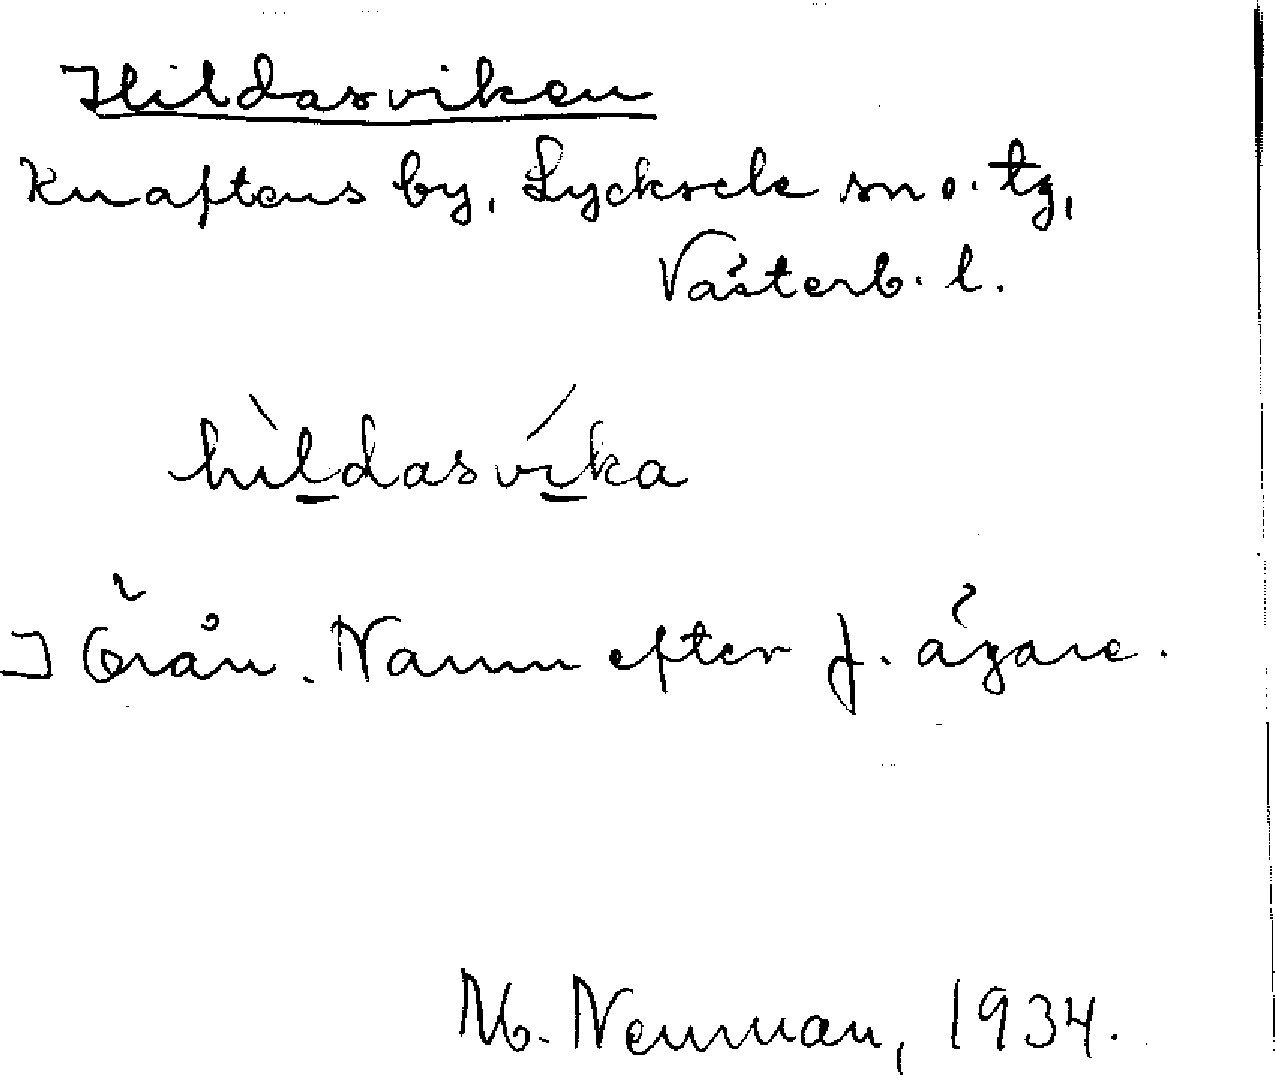 Hildasviken
Knaftens by, Lycksele sn o. tg,
Västerb. l.
hìldasvíka
I Örån. Namn efter f. ägare.
M. Neuman, 1934.